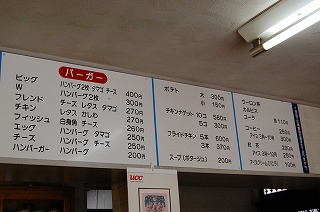 バーガー
ビッグ ハンバーグ2枚 タマゴ チーズ 400円
W ハンバーグ2枚 300円
フレンド チーズ レタス タマゴ 270円
チキン レタス かしわ 270円
フィッシュ 白身魚 チーズ 270円
エッグ ハンバーグ タマゴ 250円
チーズ ハンバーグ チーズ 250円
ハンバーガー ハンバーグ 200円
ポテト 大 300円
小 150円
チキンナゲット 10コ 580円
5コ 300円
フライドチキン 5本 600円
3本 370円
スープ(ポタージュ) 200円
ウーロン茶
カルピス
コーラ 各110円
コーヒー 250円
アイス コーヒー 300円
紅茶 230円
アイス 250円
アイスクリーム 100円
UCC